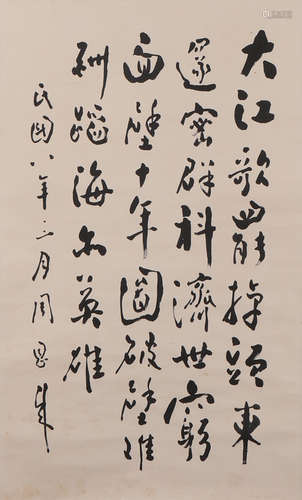 大江歌罷掉頭東
邃密群科濟世窮
面壁十年圖破壁
難酬蹈海亦英雄
民國八年三月周恩來